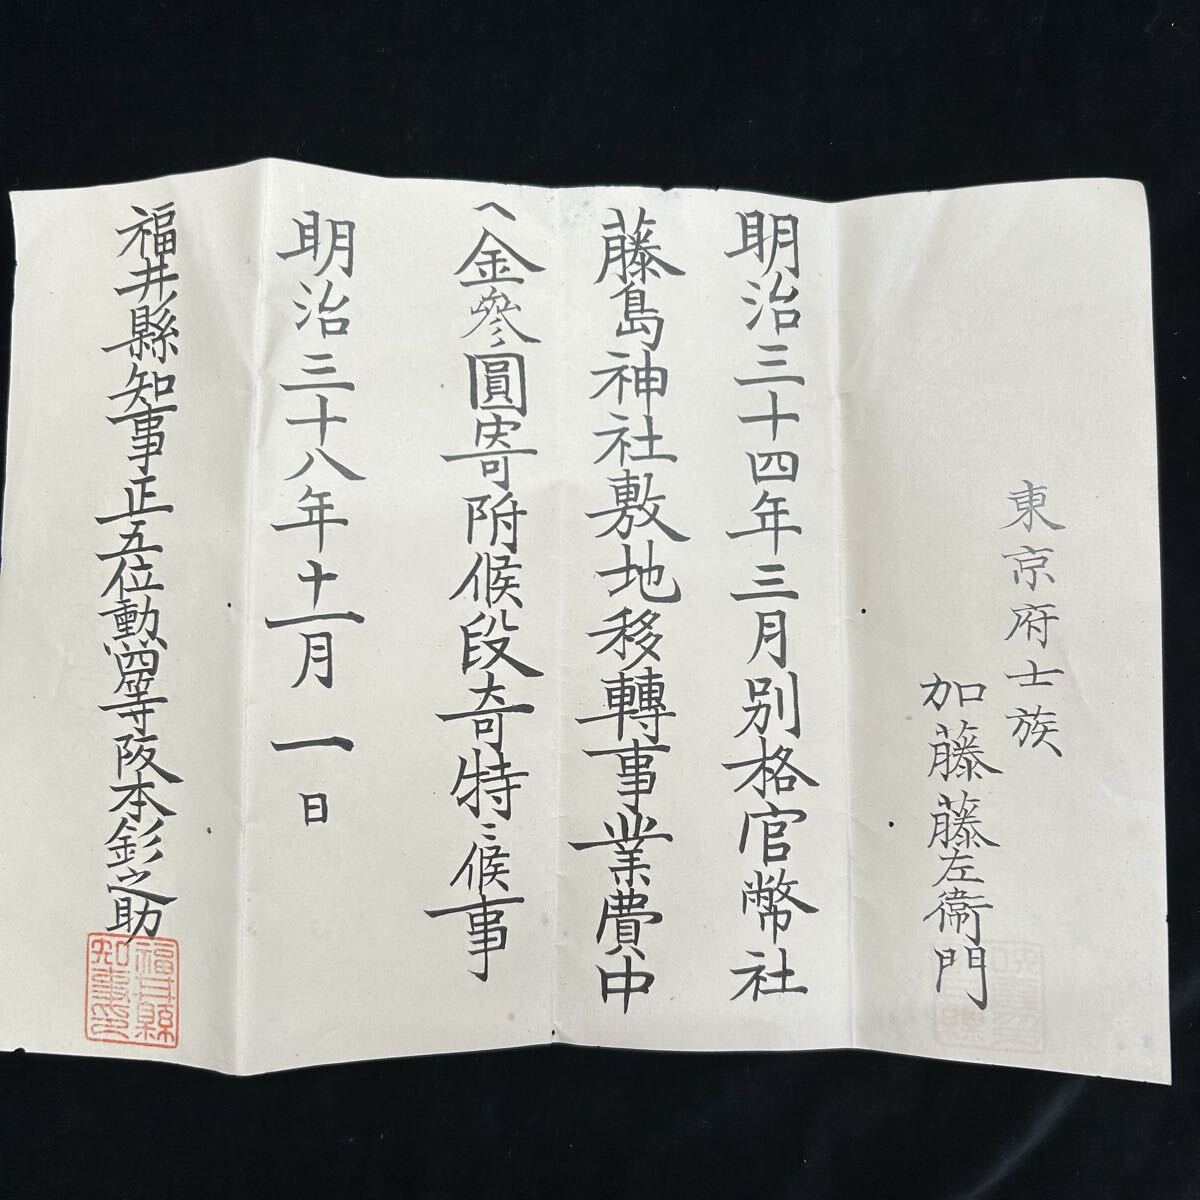 東京府士族
加藤藤左衞門
明治三十四年三月別格官幣社
藤島神社敷地移轉事業費中
へ金參圓寄附候段奇特ニ候事
明治三十八年十一月一日
福井縣知事正五位勳四等阪本釤之助
福井縣知事印